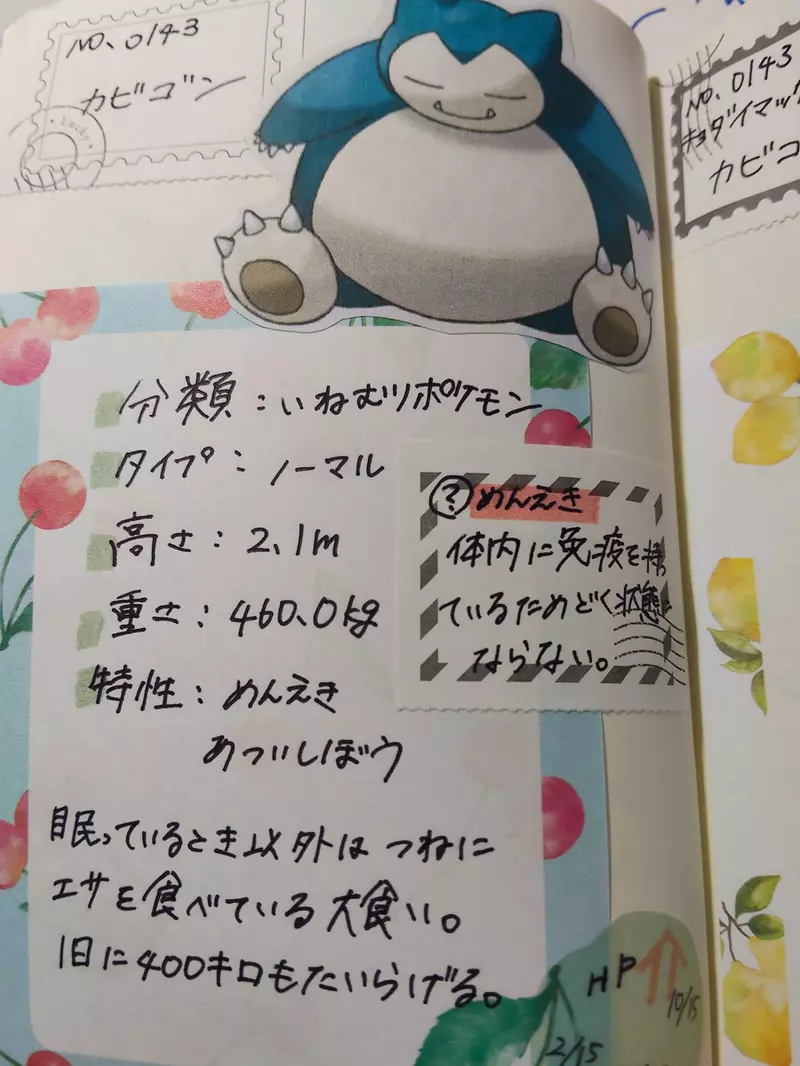 NO. 0143
カビゴン
Lucky
分類：いねむりポケモン
タイプ：ノーマル
高さ：2.1m
重さ：460.0kg
特性：めんえき
あついしぼう
?めんえき
体内に免疫を持っ
ているためどく状態に
ならない。
眠っているとき以外はつねに
エサを食べている大食い。
1日に400キロもたいらげる。
HP
10/15
2/15
NO. 0143
キョダイマック
カビコ